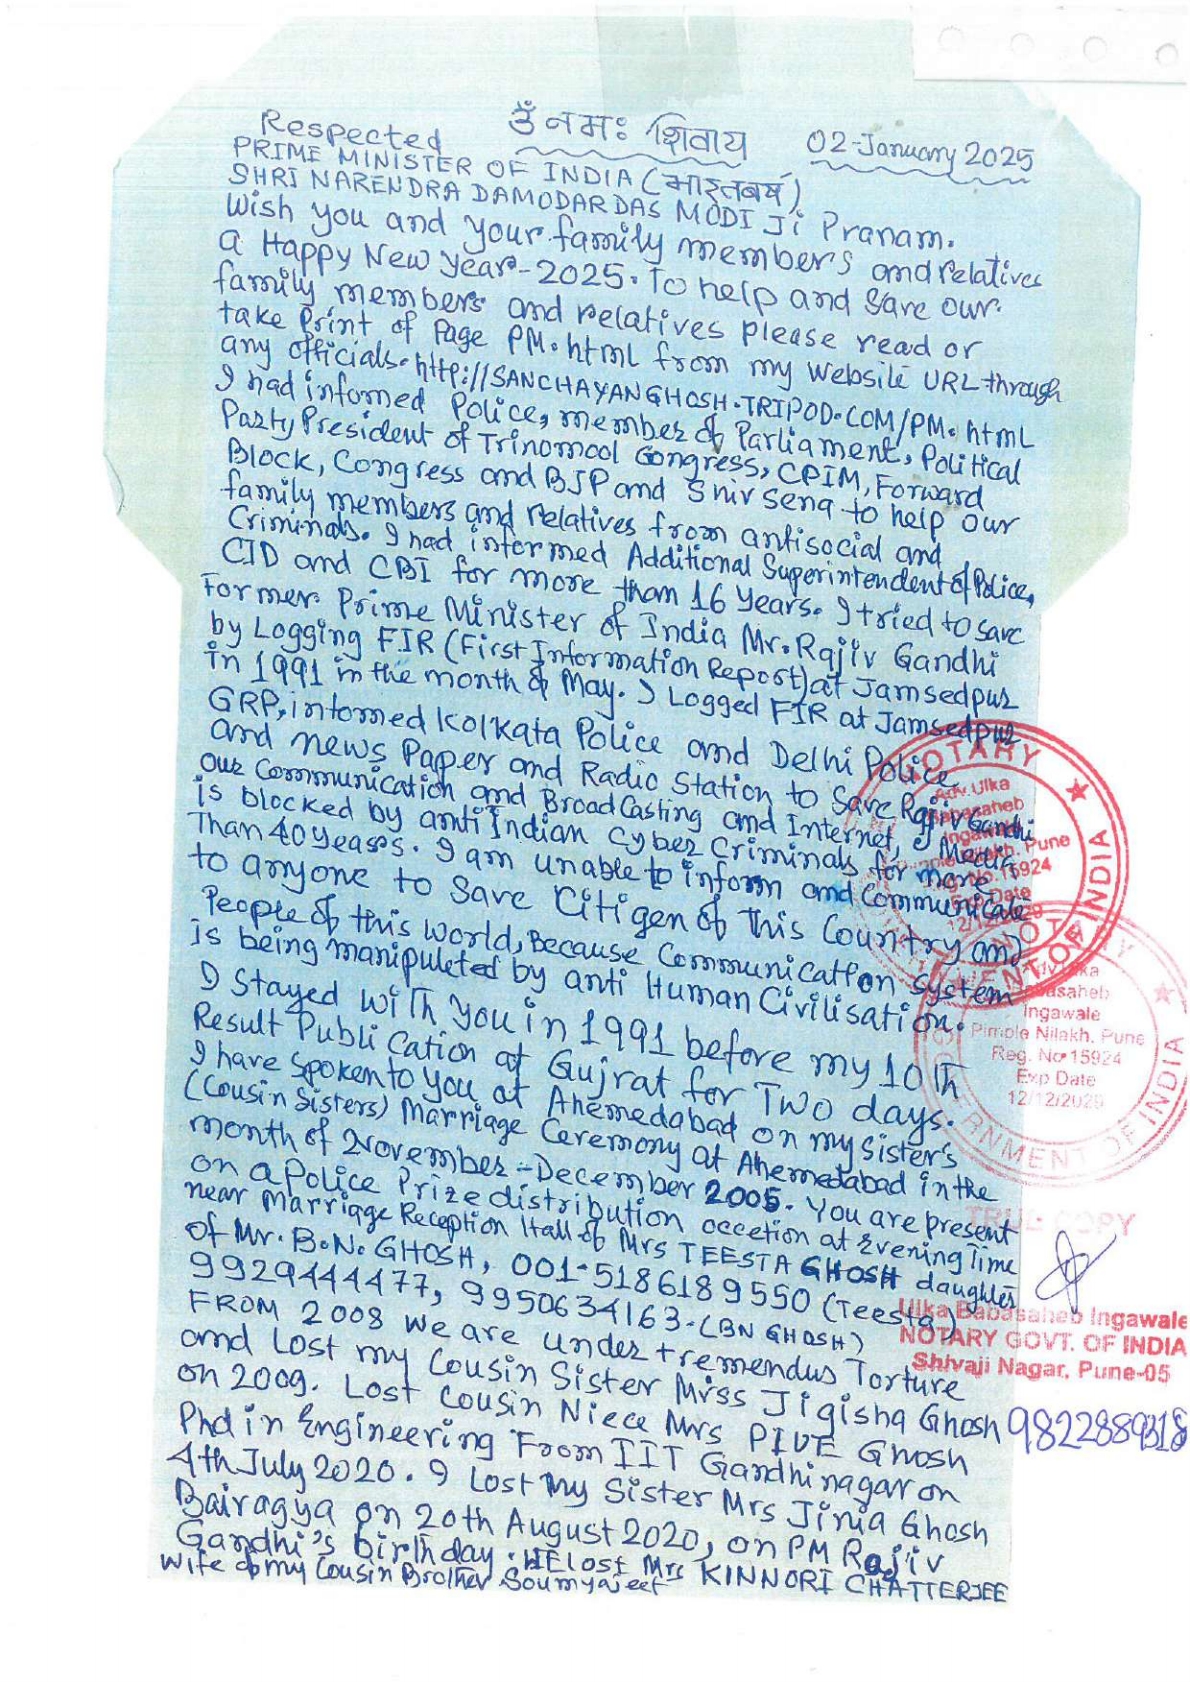 ॐ नमः शिवाय
02-January 2025
Respected
PRIME MINISTER OF INDIA (भारतबर्ष)
SHRI NARENDRA DAMODARDAS MODI Ji Pranam.
Wish you and your family members and relatives
a Happy New Year-2025. To help and save our
family members and relatives please read or
take Print of Page PM.html from my website URL through
any officials. http://SANCHAYANGHOSH.TRIPOD.COM/PM.html
I had informed Police, member of Parliament, Political
Party President of Trinomool Congress, CPIM, Forward
Block, Congress and BJP and Shiv Sena to help our
family members and relatives from antisocial and
Criminals. I had informed Additional Superintendent of Police,
CID and CBI for more than 16 Years. I tried to save
Former Prime Minister of India Mr. Rajiv Gandhi
by Logging FIR (First Information Report) at Jamsedpur
in 1991 in the month of May. I Logged FIR at Jamsedpur
GRP, informed Kolkata Police and Delhi Police
and news Paper and Radio Station to Save Rajiv Gandhi
our Communication and BroadCasting and Internet,
is blocked by anti Indian Cyber Criminals for more
Than 40 years. I am unable to inform and Communicate
to anyone to Save Citigen of This Country and
People of this world, Because Communication system
is being manipuleted by anti Human Civilisation.
I Stayed with you in 1991 before my 10th
Result Publication at Gujrat for Two days.
I have spoken to you at Ahemedabad on my sister's
(Cousin Sisters) Marriage Ceremony at Ahemedabad in the
month of November-December 2005. You are present
on a Police Prize distribution occetion at Evening Time
near Marriage Reception Hall of Mrs TEESTA GHOSH daughter
of Mr. B.N. GHOSH, 001-5186189550 (Teesta)
9929444477, 9950634163-(BN GHOSH)
FROM 2008 we are under tremendus Torture
and Lost my Cousin Sister Miss Jigisha Ghosh
on 2009. Lost Cousin Niece Mrs PIUE Ghosh
Phd in Engineering From IIT Gandhinagar on
4th July 2020. I Lost My Sister Mrs Jinia Ghosh
Bairagya on 20th August 2020, on PM Rajiv
Gandhi's birthday. WE lost Mrs KINNORI CHATTERJEE
Wife of my Cousin Brother Soumyajeet
NOTARY
Adv. Ulka
Babasaheb
Ingawale
Pimple Nilakh, Pune
Reg. No. 15924
Exp Date
12/12/2029
GOVERNMENT OF INDIA
NOTARY
Adv. Ulka
Babasaheb
Ingawale
Pimple Nilakh, Pune
Reg. No 15924
Exp Date
12/12/2029
GOVERNMENT OF INDIA
TRUE COPY
Ulka Babasaheb Ingawale
NOTARY GOVT. OF INDIA
Shivaji Nagar, Pune-05